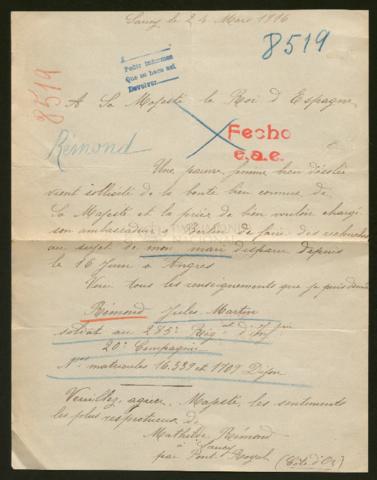 Sancy le 24 Mars 1916
8519
8519
Pedir informes
Que se hace así
Devolver
A Sa Majesté le Roi d'Espagne
Rémond
Fecho
e.a.e.
Une pauvre femme bien désolée
vient solliciter de la bonté bien connue de
Sa Majesté et la prier de bien vouloir charger
son ambassadeur à Berlin de faire des recherches
au sujet de mon mari disparu depuis
le 16 Juin à Angres
Voici tous les renseignements que je puis donner
Rémond Jules Martin
soldat au 285e Régt d'Infrie
20e Compagnie
Nos matricules 16.339 et 1709 Dijon
Veuillez, agréer, Majesté, les sentiments
les plus respectueux de
Mathilde Rémond
à Sancy
par Pont Royal (Côte d'Or)